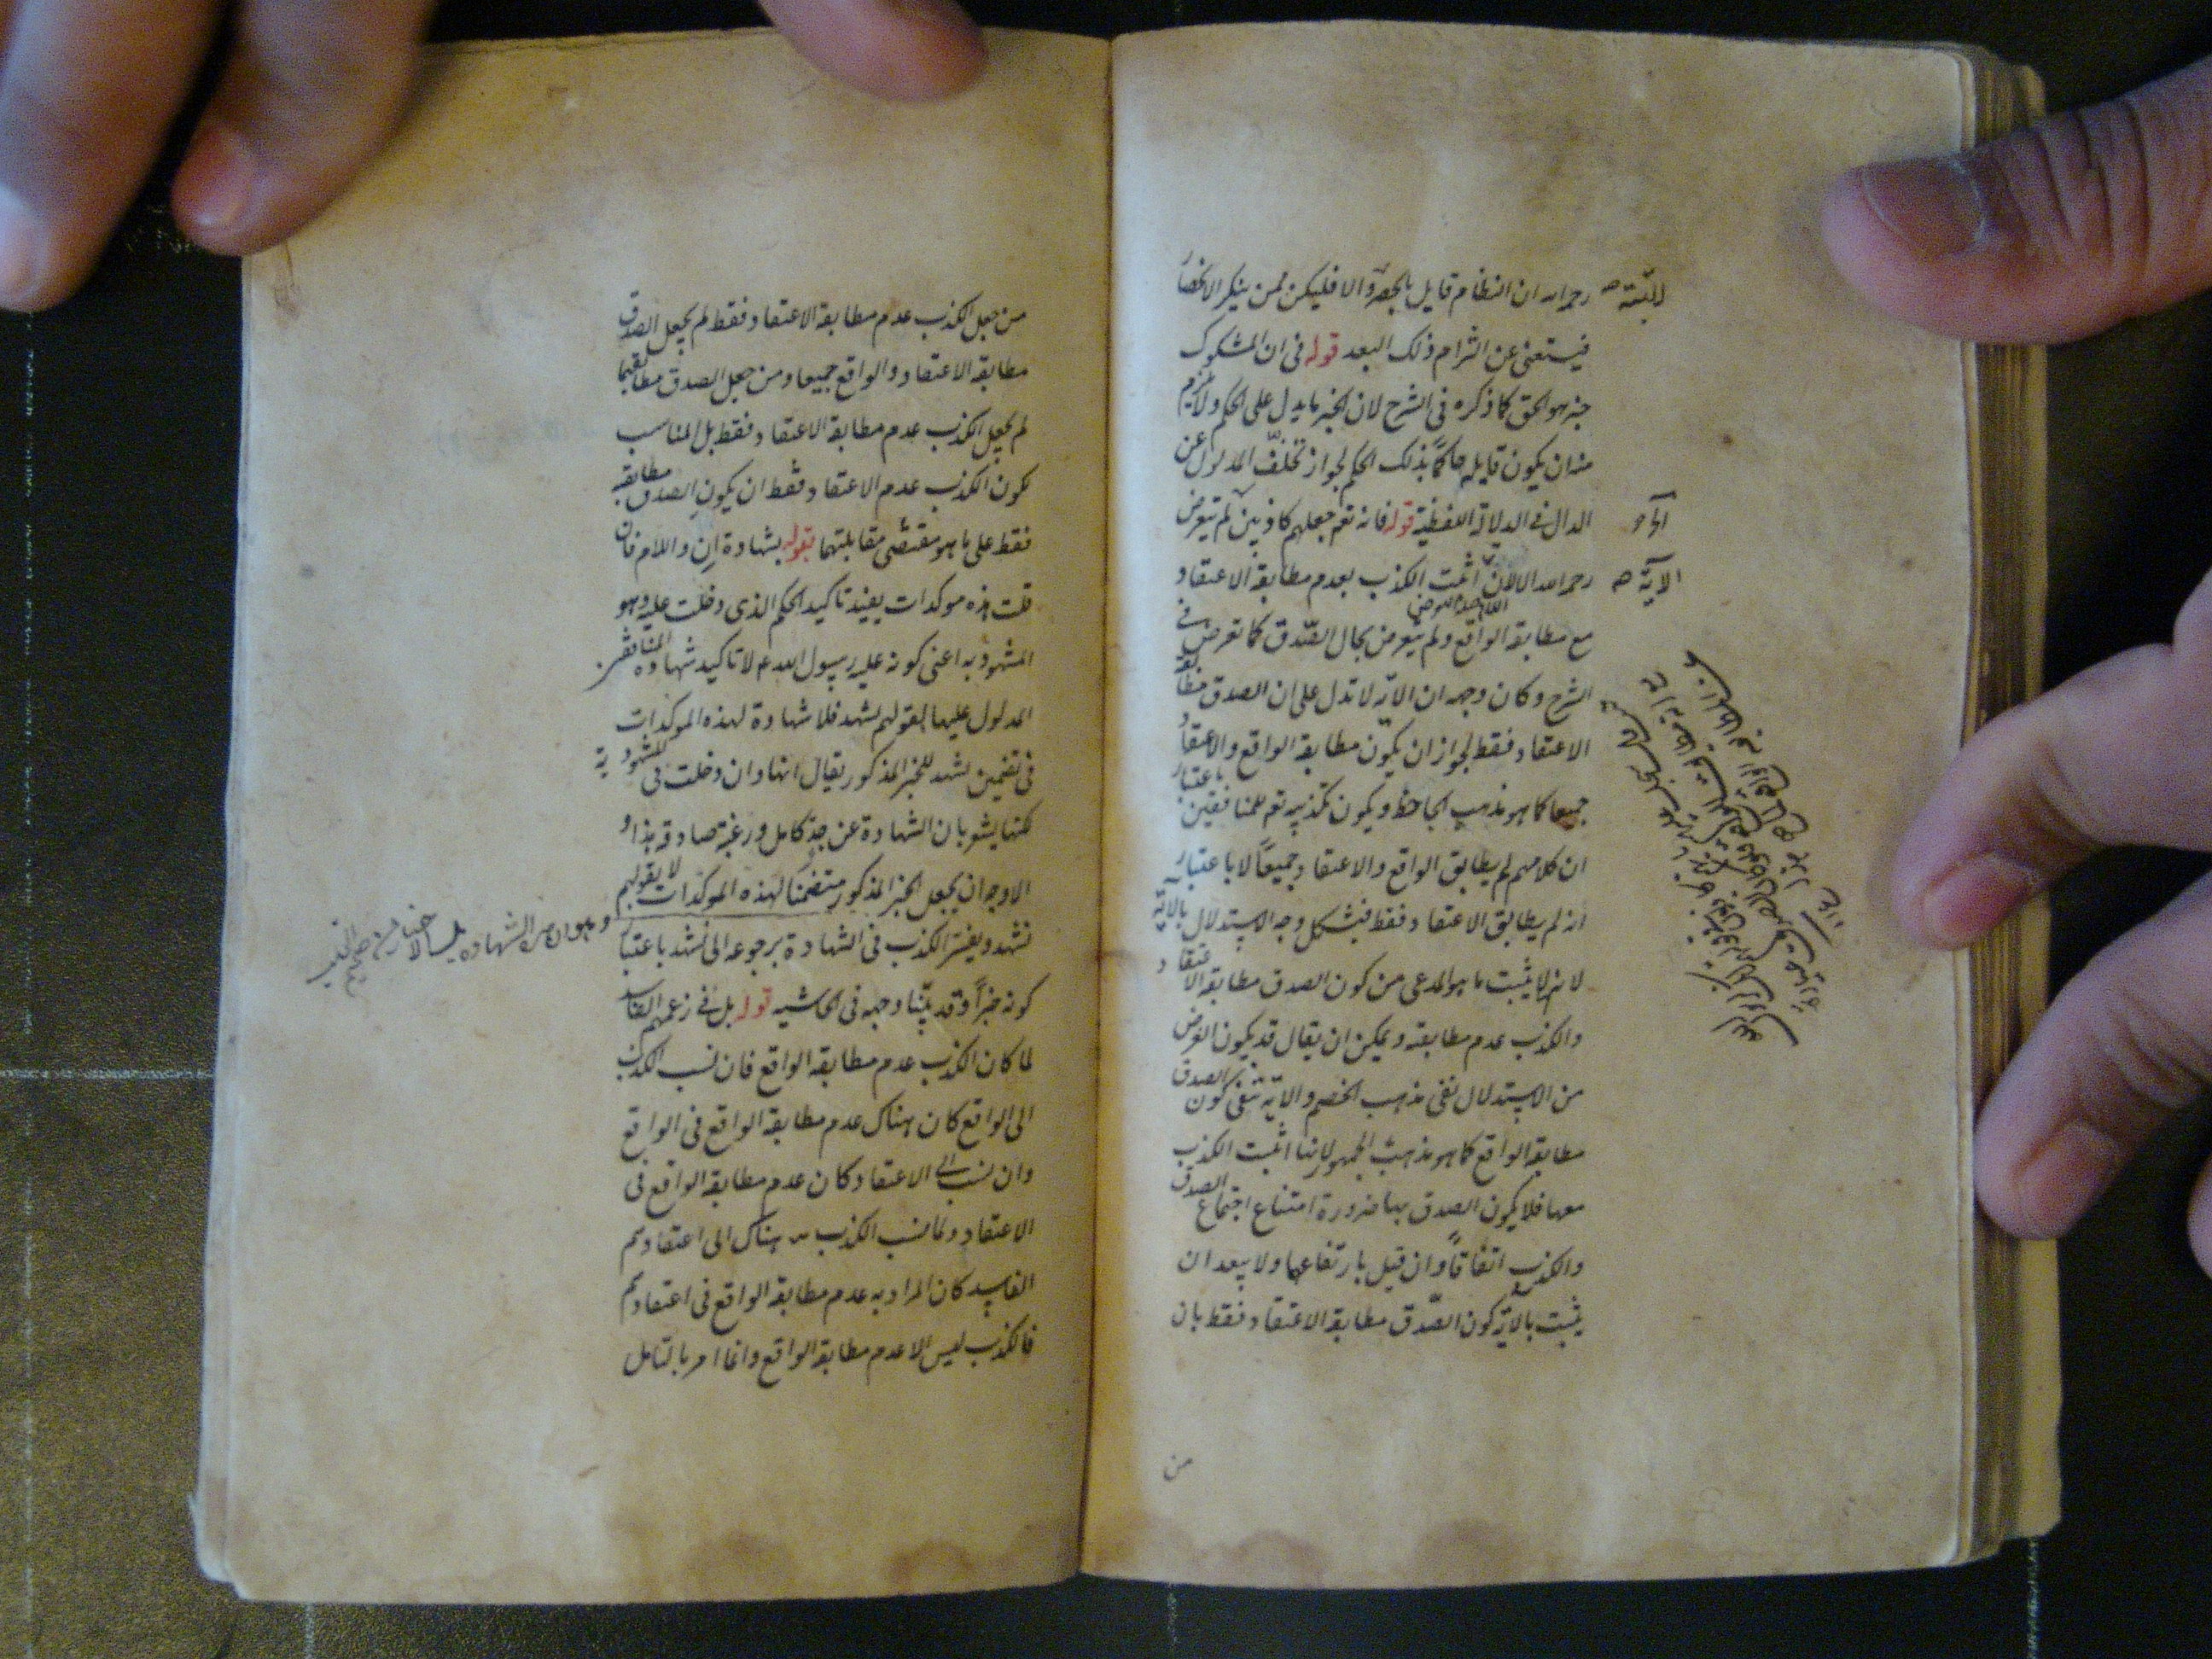 رحمه الله ان النظام قايل بالحصر والا فليكن ممن ينكر الانحصا
فيستغنى عن التزام ذلك البعد قوله فى ان المشكوك
خبر هو الحق كما ذكره فى الشرح لان الخبر ما يدل على الحكم ولا يلزم
منه ان يكون قايله حاكمًا بذلك الحكم لجواز تخلّف المدلول عن
الدال فى الدلالة اللفظية قوله فانه تعم جعلهم كاذبين لم يتعرض
رحمه الله الا لان اثبت الكذب بعدم مطابقة الاعتقاد
مع مطابقة الواقع ولم يتعرض بحال الصّدق كما تعرض فى
الشرح وكان وجهه ان الاية لا تدل على ان الصدق مطابقة
الاعتقاد فقط لجواز ان يكون مطابقة الواقع والاعتقاد
جميعا كما هو مذهب الجاحظ ويكون تكذيبه تعم للمنافقين باعتبار
ان كلامهم لم يطابق الواقع والاعتقاد جميعًا لا باعتبار
انه لم يطابق الاعتقاد فقط فيشكل وجه الاستدلال بالآية
لانه لا يثبت ما هو المدعى من كون الصدق مطابقة الاعتقاد
والكذب عدم مطابقته ويمكن ان يقال قد يكون الغرض
من الاستدلال نفى مذهب الخصم والاية تنفى كون الصدق
مطابقة الواقع كما هو مذهب الجمهور لانها اثبت الكذب
معها فلا يكون الصدق بها ضرورة امتناع اجتماع الصدق
والكذب اتفاقًا وان قيل بارتفاعهما ولا يبعد ان
يثبت بالاية كون الصّدق مطابقة الاعتقاد فقط بان
البتة صح
الآية صح
من
من جعل الكذب عدم مطابقة الاعتقاد فقط لم يجعل الصدق
مطابقة الاعتقاد والواقع جميعا ومن جعل الصدق مطابقتهما
لم يجعل الكذب عدم مطابقة الاعتقاد فقط بل المناسب
لكون الكذب عدم الاعتقاد فقط ان يكون الصدق مطابقة
فقط على ما هو مقتضى مقابلتهما قوله بشهادة ان واللام فان
قلت هذه موكدات يفيد تاكيد الحكم الذى دخلت عليه وهو
المشهود به اعنى كونه عليه رسول الله لا تاكيد شهادة المنافقين
المدلول عليها بقولهم نشهد فلا شهادة لهذه الموكدات
فى تضمين نشهد للخبر المذكور يقال انها وان دخلت فى المشهود به
لكنها يشعر بان الشهادة عن جد كامل ورغبة صادقة هذا و
الاوجه ان يجعل الخبر المذكور متضمنا لهذه الموكدات لا بقولهم
نشهد ويفسّر الكذب فى الشهادة برجوعه الى نشهد باعتبار
كونه خبرًا وقد بيّنا وجهه فى الحاشيه قوله بل فى زعمهم الفاسد
لما كان الكذب عدم مطابقة الواقع فان نسب الكذب
الى الواقع كان هناك عدم مطابقة الواقع فى الواقع
وان نسب الى الاعتقاد كان عدم مطابقة الواقع فى
الاعتقاد ولما نسب الكذب هناك الى اعتقادهم
الفاسد كان المراد به عدم مطابقة الواقع فى اعتقادهم
فالكذب ليس الا عدم مطابقة الواقع وانما امر بالتامل